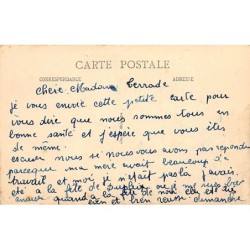 CARTE POSTALE
CORRESPONDANCE ADRESSE
Chère Madame Terrade
je vous envoie cette petite carte pour
vous dire que nous sommes tous en
bonne santé et j'espère que vous êtes
de même.
excuser nous si nous vous avons pas repondu
parceque ma mère avait beaucoup de
travail et moi je n'était pas là j'avais
été a la fête de
quand la fête de elle est
bien et bien reussi dimanche